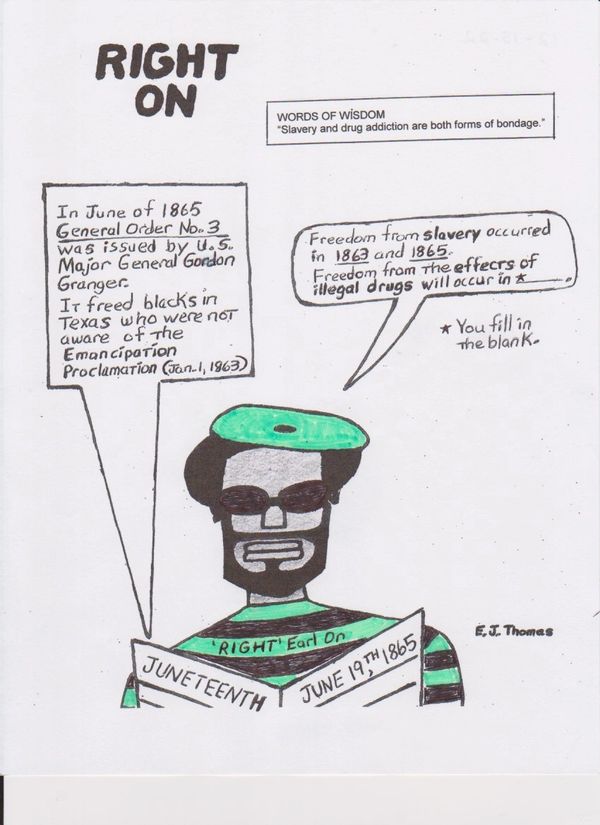 RIGHT
ON
WORDS OF WISDOM
"Slavery and drug addiction are both forms of bondage."
In June of 1865
General Order No. 3
was issued by U.S.
Major General Gordon
Granger.
It freed blacks in
Texas who were not
aware of the
Emancipation
Proclamation (Jan. 1, 1863)
Freedom from slavery occurred
in 1863 and 1865.
Freedom from the effects of
illegal drugs will occur in *______.
* You fill in
the blank.
'RIGHT' Earl On
E.J. Thomas
JUNETEENTH
JUNE 19,TH 1865